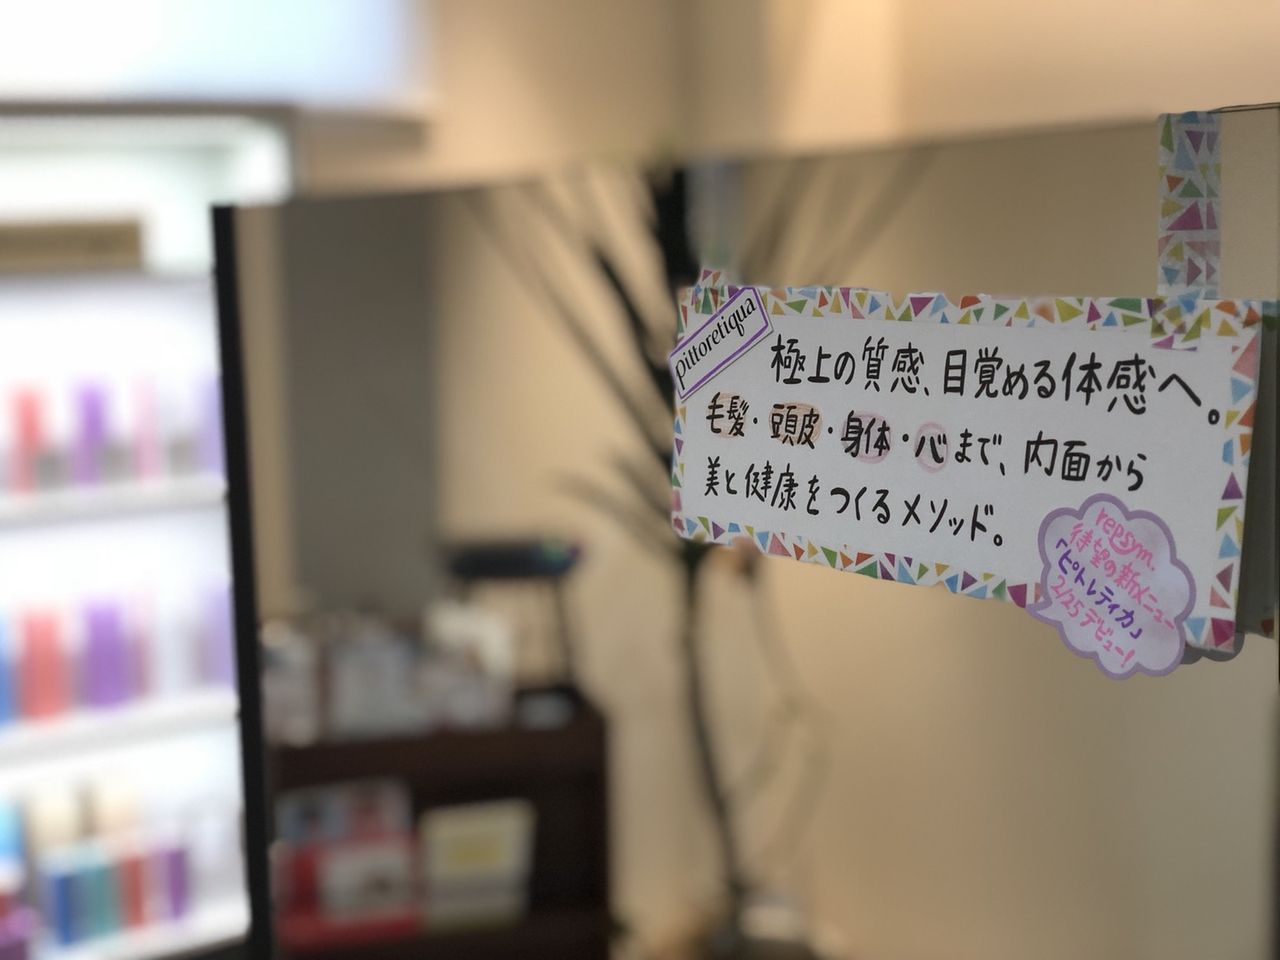 pittoretiqua
極上の質感、目覚める体感へ。
毛髪・頭皮・身体・心まで、内面から
美と健康をつくるメソッド。
repsym.
待望の新メニュー
「ピトレティカ」
2/25デビュー!